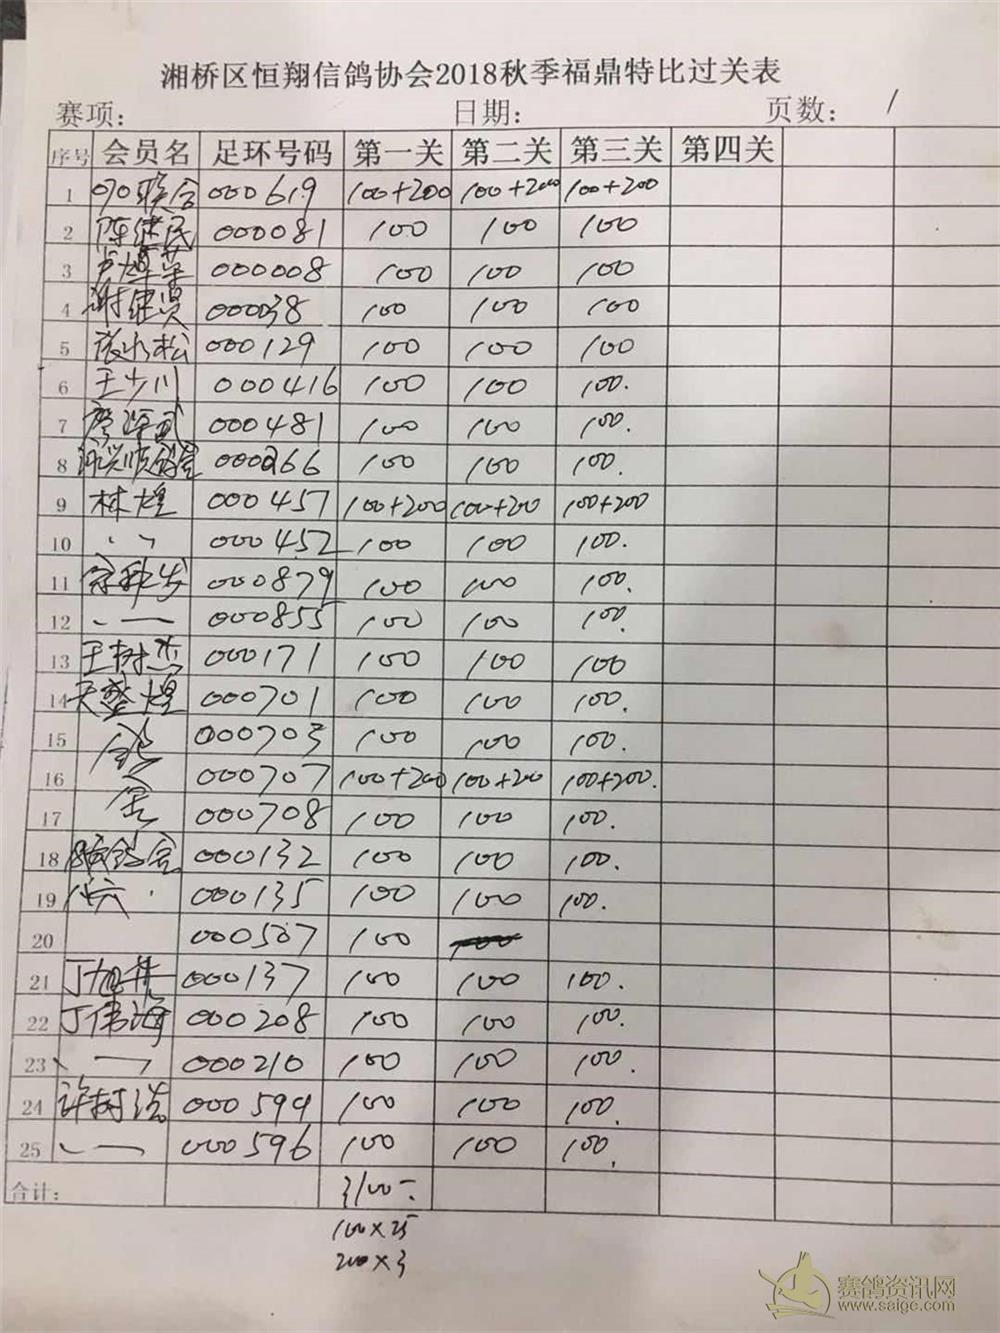 湘桥区恒翔信鸽协会2018秋季福鼎特比过关表
赛项: 日期: 页数: 1
序号 会员名 足环号码 第一关 第二关 第三关 第四关
1 联合 000619 100+200 100+200 100+200
2 陈继民 000081 100 100 100
3 000008 100 100 100
4 谢继贤 000038 100 100 100
5 张水松 000129 100 100 100
6 王少川 000416 100 100 100.
7 000481 100 100 100.
8 000266 100 100 100.
9 林煌 000457 100+200 100+200 100+200
10 〃 000452 100 100 100.
11 000879 100 100 100.
12 000855 100 100 100.
13 王树杰 000171 100 100 100
14 煌 000701 100 100 100.
15 000703 100 100 100.
16 000707 100+200 100+200 100+200.
17 000708 100 100 100.
18 000132 100 100 100.
19 000135 100 100 100.
20 000507 100
21 丁旭 000137 100 100 100.
22 丁伟海 000208 100 100 100.
23 000210 100 100 100.
24 许树浩 000599 100 100 100.
25 000596 100 100 100.
合计: 3100-
100×25
200×3
赛鸽资讯网
www.saige.com